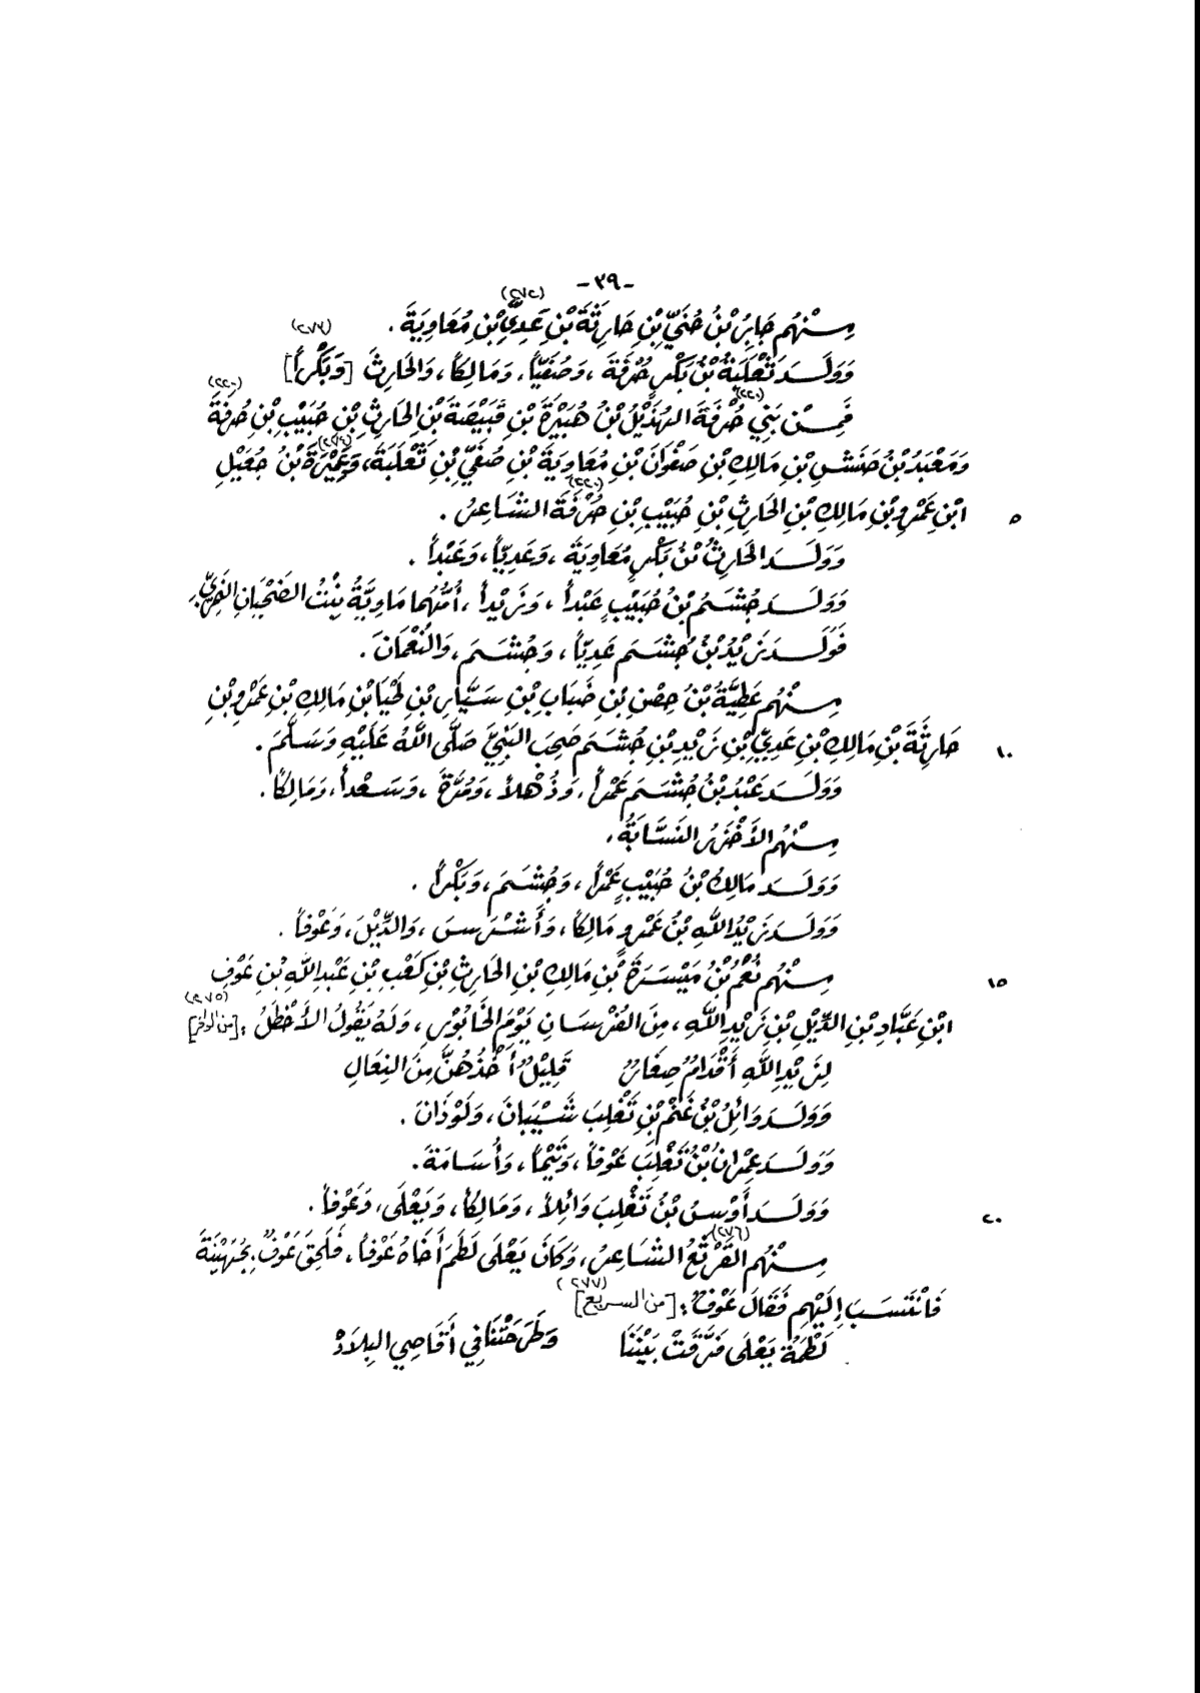 -٣٩-
مِنْهُم جَابِرُ بْنُ حُنَيِّ بْنِ حَارِثَةَ بْنِ عَدِيِّ بْنِ مُعَاوِيَةَ . (٢٧٢)
وَوَلَدَ ثَعْلَبَةُ بْنُ بَكْرٍ حُرْفَةَ ، وَصُفَيّاً ، وَمَالِكاً ، وَالحَارِثَ [وَبَكْراً] (٢٧٣)
فَمِنْ بَنِي حُرْفَةَ الهُذَيْلُ بْنُ هُبَيْرَةَ بْنِ قَبِيْصَةَ بْنِ الحَارِثِ بْنِ حُبَيْبِ بْنِ حُرْفَةَ (٢٢٠)
وَمَعْبَدُ بْنُ حَنَشِ بْنِ مَالِكِ بْنِ صَفْوَانَ بْنِ مُعَاوِيَةَ بْنِ صُفَيِّ بْنِ ثَعْلَبَةَ ، وَعَمِيْرَةُ بْنُ جُعَيْلِ (٢٧٤)
٥ ابْنِ عَمْرِو بْنِ مَالِكِ بْنِ الحَارِثِ بْنِ حُبَيْبِ بْنِ حُرْفَةَ الشَّاعِرُ . (٢٢٠)
وَوَلَدَ الحَارِثُ بْنُ بَكْرٍ مُعَاوِيَةَ ، وَعَدِيّاً ، وَعَبْداً .
وَوَلَدَ جُشَمُ بْنُ حُبَيْبٍ عَبْداً ، وَزَيْداً ، أُمُّهُمَا مَاوِيَّةُ بِنْتُ الضَّحْيَانِ النَّمَرِيِّ .
فَوَلَدَ زَيْدُ بْنُ جُشَمَ عَدِيّاً ، وَجُشَمَ ، وَالنُّعْمَانَ .
مِنْهُم عَطِيَّةُ بْنُ حِصْنِ بْنِ ضَبَابِ بْنِ سَيَّارِ بْنِ لَحْيَا بْنِ مَالِكِ بْنِ عَمْرِو بْنِ
١٠ حَارِثَةَ بْنِ مَالِكِ بْنِ عَدِيِّ بْنِ زَيْدِ بْنِ جُشَمَ صَحِبَ النَّبِيَّ صَلَّى اللَّهُ عَلَيْهِ وَسَلَّمَ .
وَوَلَدَ عَبْدُ بْنُ جُشَمَ عَمْراً ، وَذُهْلاً ، وَمُرَّةَ ، وَسَعْداً ، وَمَالِكاً .
مِنْهُم الأَخْزَرُ النَّسَّابَةُ .
وَوَلَدَ مَالِكُ بْنُ حُبَيْبٍ عَمْراً ، وَجُشَمَ ، وَبَكْراً .
وَوَلَدَ زَيْدُ اللَّهِ بْنُ عَمْرٍو مَالِكاً ، وَأَشْرَسَ ، وَالدِّيْلَ ، وَعَوْفاً .
١٥ مِنْهُم نُعْمُ بْنُ مَيْسَرَةَ بْنِ مَالِكِ بْنِ الحَارِثِ بْنِ كَعْبِ بْنِ عَبْدِ اللَّهِ بْنِ عَوْفِ
ابْنِ عَبَّادِ بْنِ الدِّيْلِ بْنِ زَيْدِ اللَّهِ ، مِنَ الفُرْسَانِ يَوْمَ الخَابُوْرِ ، وَلَهُ يَقُولُ الأَخْطَلُ : [من الوافر] (٢٧٥)
لِزَيْدِ اللَّهِ أَقْدَامٌ صِغَارٌ قَلِيْلٌ أَخْذُهُنَّ مِنَ النِّعَالِ
وَوَلَدَ وَائِلُ بْنُ غَنْمِ بْنِ تَغْلِبَ شَيْبَانَ ، وَلَوْذَانَ .
وَوَلَدَ عِمْرَانُ بْنُ تَغْلِبَ عَوْفاً ، وَتَيْماً ، وَأُسَامَةَ .
٢٠ وَوَلَدَ أَوْسُ بْنُ تَغْلِبَ وَائِلاً ، وَمَالِكاً ، وَيَعْلَى ، وَعَوْفاً .
مِنْهُم القَرْثَعُ الشَّاعِرُ ، وَكَانَ يَعْلَى لَطَمَ أَخَاهُ عَوْفاً ، فَلَحِقَ عَوْفٌ بِجُهَيْنَةَ (٢٧٦)
فَانْتَسَبَ إِلَيْهِم فَقَالَ عَوْفٌ : [من السريع] (٢٧٧)
لَطْمَةُ يَعْلَى فَرَّقَتْ بَيْنَنَا وَطَرَحَتْنَا فِي أَقَاصِي البِلَادْ